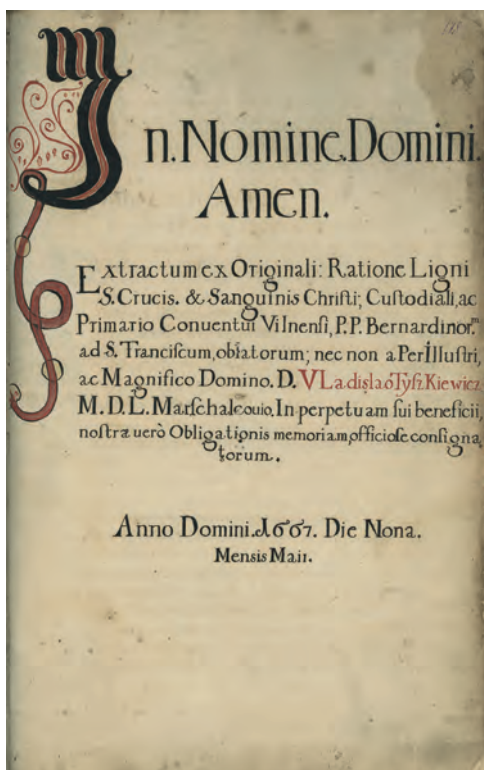 In. Nomine. Domini.
Amen.
Extractum ex Originali: Ratione Ligni
S. Crucis. & Sanguinis Christi; Custodiali, ac
Primario Conuentui Vilnensi, P.P. Bernardinor.m
ad S. Franciscum, oblatorum; nec non a PerIllustri,
ac Magnifico Domino. D. VLadislaó Tysz Kiewicz
M. D. L. Marschalcouio. In perpetuam sui beneficii,
nostræ uerò Obligationis memoriam, officiose consigna
torum.
Anno Domini. 1667. Die Nona.
Mensis Maii.